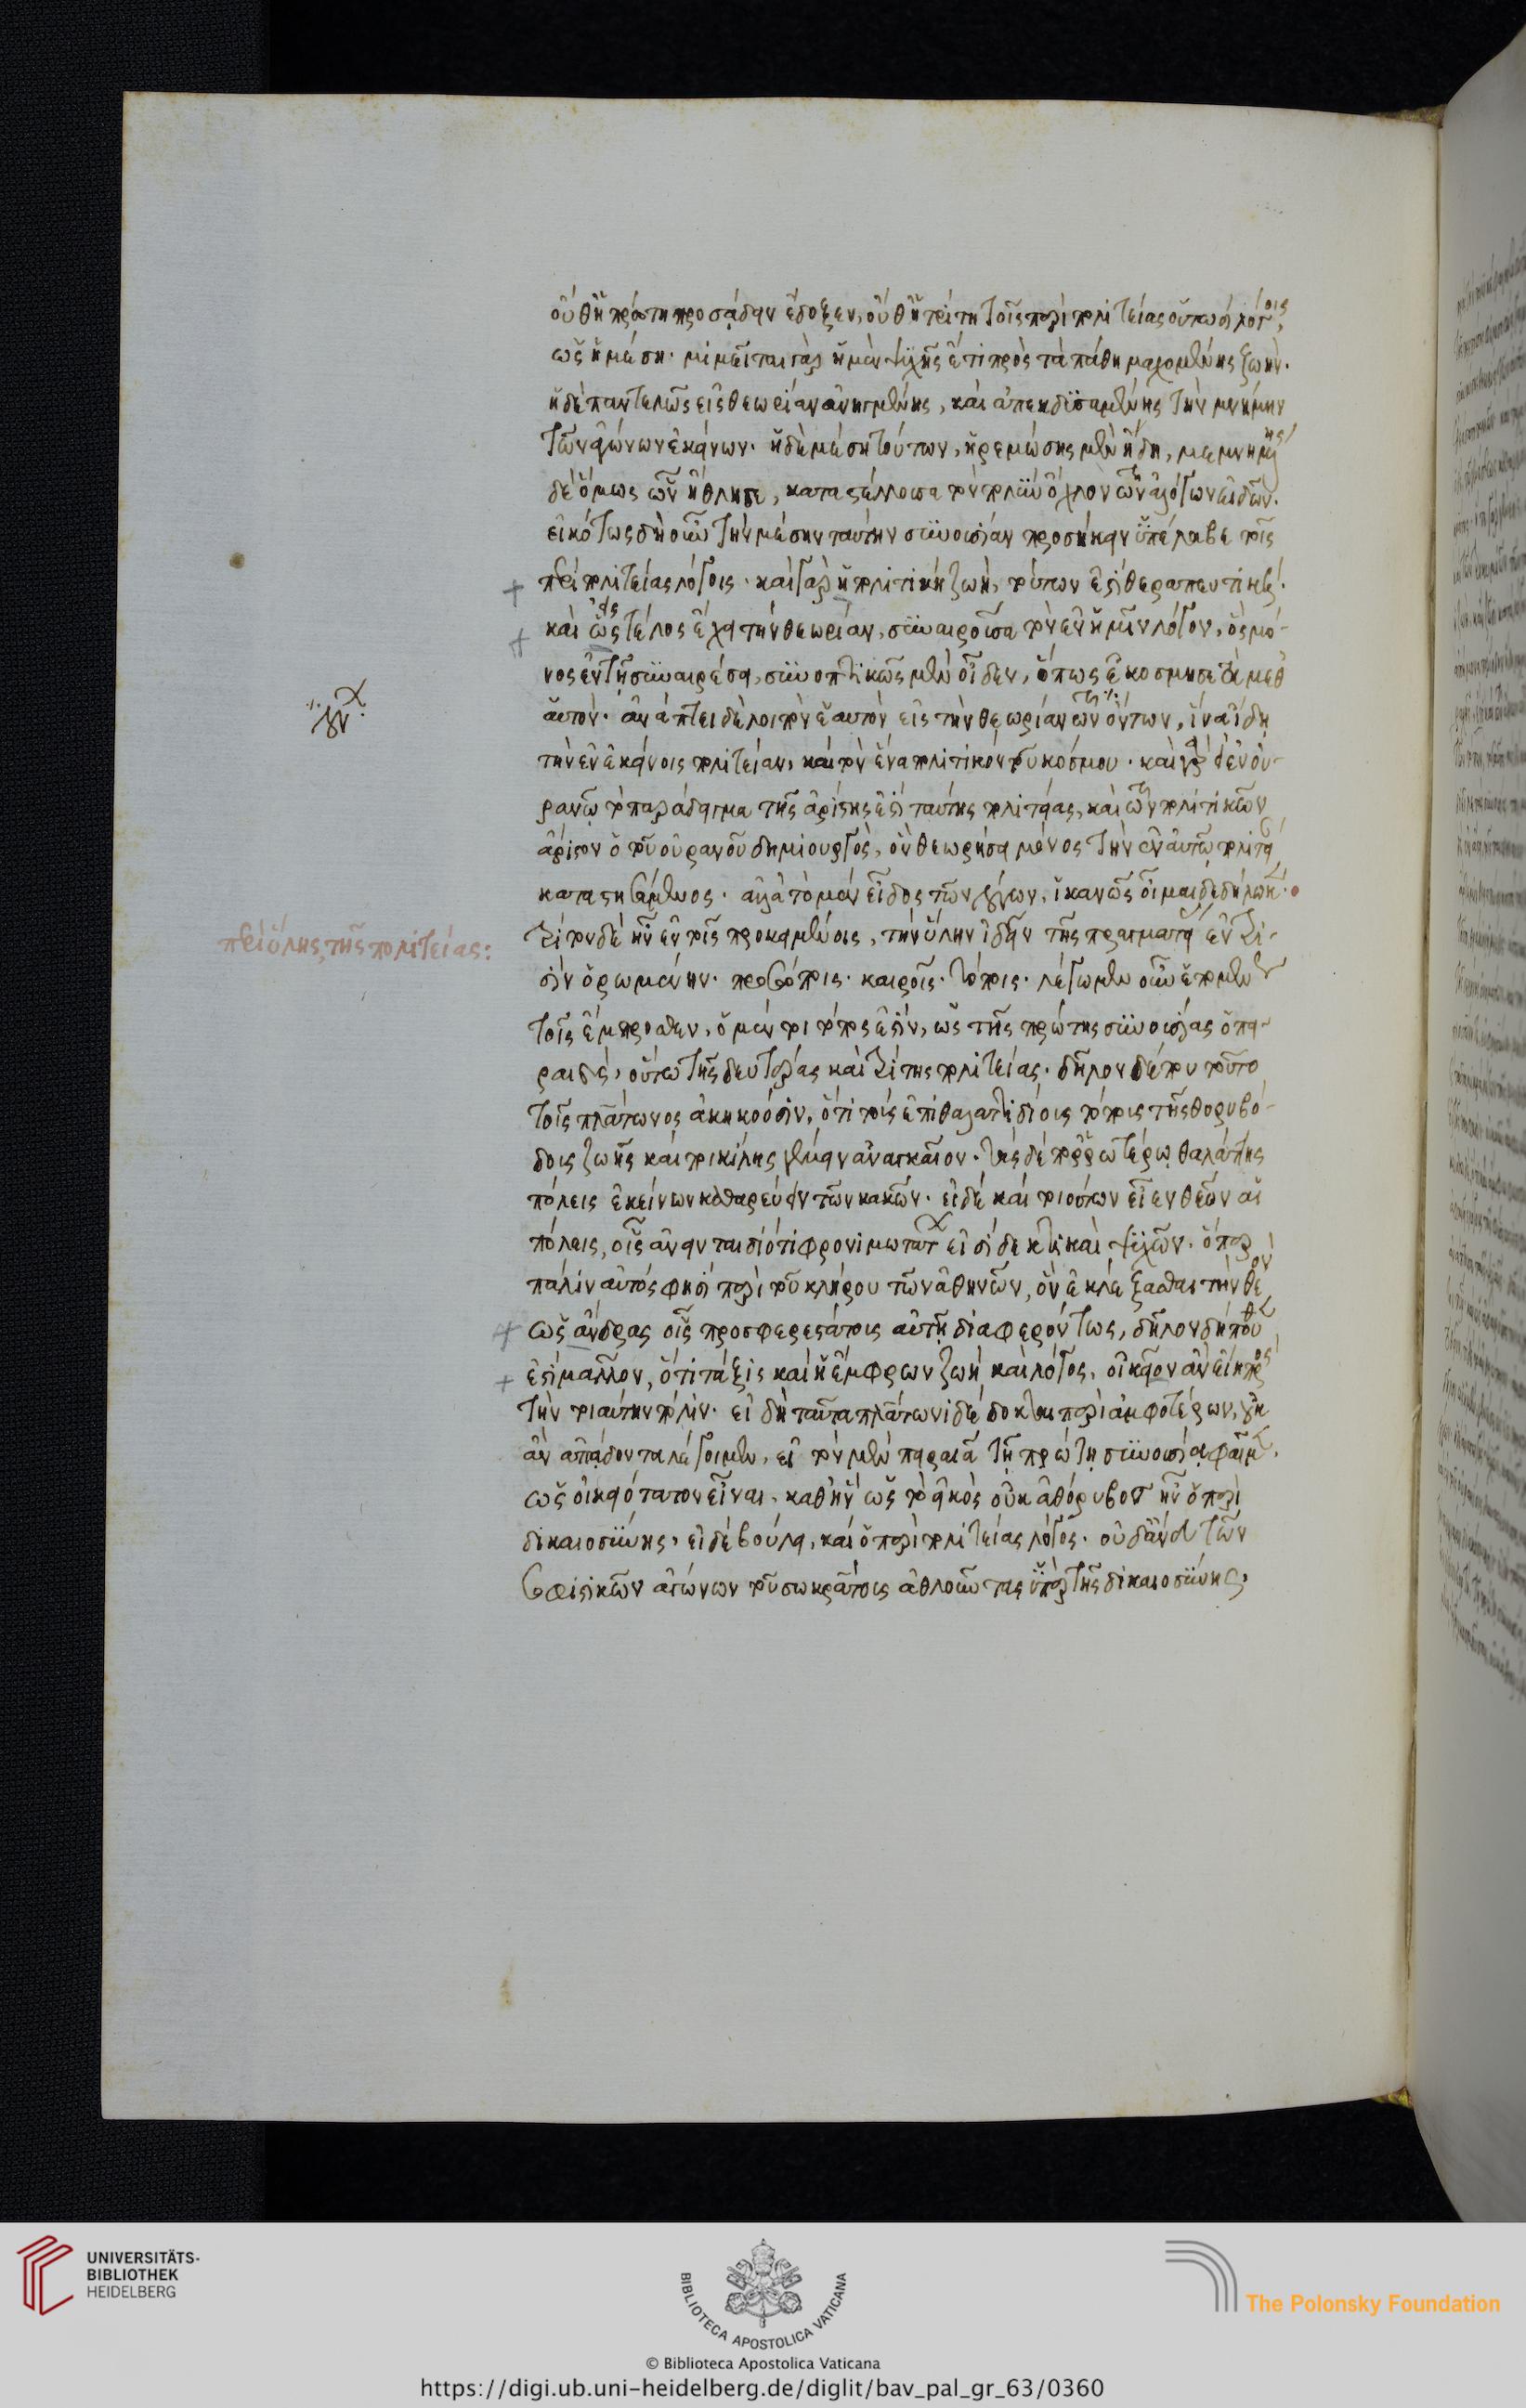 οὔθ' ἡ πρώτη προσάδειν ἔδοξεν, οὔθ' ἡ τρίτη τοῖς περὶ πολιτείας οὑτωσὶ λόγοις,
ὡς ἡ μέση. μιμεῖται γὰρ ἡ μὲν ψυχῆς ἔτι πρὸς τὰ πάθη μαχομένης ζωήν.
ἡ δὲ παντελῶς εἰς θεωρίαν ἀνηγμένης, καὶ ἀπεκδυσαμένης τὴν μνήμην
τῶν ἀγώνων ἐκείνων. ἡ δὲ μέση τούτων, ἠρεμώσης μὲν ἤδη, μεμνημένης
δὲ ὅμως ὧν ἤθλησε, καταστέλλουσα τὸν πολὺν ὄχλον τῶν ἀλόγων εἰδῶν.
εἰκότως δὴ οὖν τὴν μέσην ταύτην συνουσίαν προσήκειν ὑπέλαβε τοῖς
περὶ πολιτείας λόγοις. καὶ γὰρ ἡ πολιτικὴ ζωή, τούτων ἐστὶ θεραπευτικὴ.
καὶ ὡς τέλος ἔχει τὴν θεωρίαν, συναιροῦσα τὸν ἐν ἡμῖν λόγον, ὃς μό-
νος ἐν τῇ συναιρέσει, συνοπτικῶς μὲν οἶδεν, ὅπως ἐκόσμησε τὰ μεθ'
αὑτόν. ἀνάπτει δὲ λοιπὸν ἑαυτὸν εἰς τὴν θεωρίαν τῶν ὄντων, ἵνα ἴδῃ
τὴν ἐν ἐκείνοις πολιτείαν, καὶ τὸν ἕνα πολιτικὸν τοῦ κόσμου. καὶ γὰρ ἐν οὐ-
ρανῷ τὸ παράδειγμα τῆς ἀρίστης ἐστὶ ταύτης πολιτείας, καὶ τῶν πολιτικῶν
ἄριστον ὁ τοῦ οὐρανοῦ δημιουργὸς, ὃν θεωρήσει μόνος τὴν ἐν αὑτῷ πολιτεί
καταστησάμενος. ἀλλὰ τὸ μὲν εἶδος τῶν λόγων, ἱκανῶς οἶμαι δεδήλωται.
τρίτον δὲ ἦν ἐν τοῖς προκειμένοις, τὴν ὕλην ἰδεῖν τῆς πραγματεί ἐν τρι-
σὶν ὁρωμένην. προσώποις. καιροῖς. τόποις. λέγωμεν οὖν ἑπομεν
τοῖς ἔμπροσθεν, ὁ μέν τοι τόπος ἐστὶν, ὡς τῆς πρώτης συνουσίας ὁ πει-
ραιεύς, οὕτω τῆς δευτέρας καὶ τρίτης πολιτείας. δῆλον δέ που τοῦτο
τοῖς πλάτωνος ἀκηκοόσιν, ὅτι τοῖς ἐπιθαλαττιδίοις τόποις τῆς θορυβώ-
δους ζωῆς καὶ ποικίλης γέμειν ἀναγκαῖον. τὰς δὲ πορρωτέρω θαλάττης
πόλεις ἐκείνων καθαρεύειν τῶν κακῶν. εἰ δὲ καὶ τοιούτων εἶεν θεῶν αἱ
πόλεις, οἷς ἂν ᾖ φρονιμωτάτ εἰσὶ δεκτικαὶ ψυχῶν. ὅπερ
πάλιν αὐτός φησι περὶ τοῦ κλήρου τῶν ἀθηνῶν, ὃν ἐκλέξασθαι τὴν θεὸν
ὡς ἄνδρας οἷς προσφερεστάτοις αὐτῇ διαφερόντως, δῆλον δήπουθεν
ἔτι μᾶλλον, ὅτι τάξις καὶ ἡ ἔμφρων ζωὴ καὶ λόγος, οἰκεῖον ἂν εἴη πρὸς
τὴν τοιαύτην πόλιν. εἰ δὴ ταῦτα πλάτωνι δέδοκται περὶ ἀμφοτέρων, οὐκ
ἂν ἀπᾴδοντα λέγοιμεν, εἰ τὸν μὲν πειραιᾶ τῇ πρώτῃ συνουσίᾳ φαῖμεν,
ὡς οἰκειότατον εἶναι. καθ' ἣν ὡς τὸ εἰκὸς οὐκ ἀθόρυβος ἦν ὁ περὶ
δικαιοσύνης. εἰ δὲ βούλει, καὶ ὁ περὶ πολιτείας λόγος. οὐδ' ἄνευ τῶν
σοφιστικῶν ἀγώνων τοῦ σωκράτους ἀθλοῦντος ὑπὲρ τῆς δικαιοσύνης,
περὶ ὕλης τῆς πολιτείας:
UNIVERSITÄTS-
BIBLIOTHEK
HEIDELBERG
BIBLIOTECA APOSTOLICA VATICANA
© Biblioteca Apostolica Vaticana
The Polonsky Foundation
https://digi.ub.uni-heidelberg.de/diglit/bav_pal_gr_63/0360